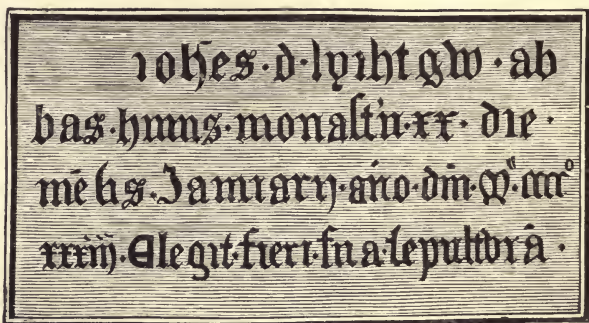 iohes·d·lychtgw·ab
bas·huius·monast'ii·xx·die·
mēsis·Januarij·ano·dm̄·M°·cccc°
xxxiij·Elegit·fieri·sua·sepulturā·